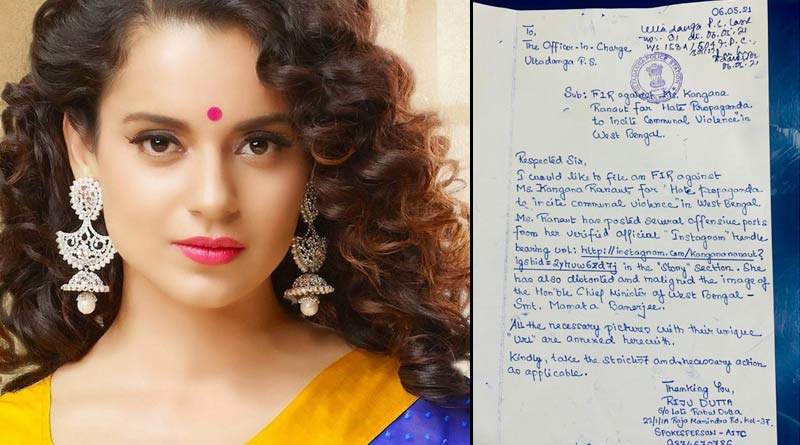 06.05.21
To,
The Officer-in-Charge
Ultadanga P.S.
Ulta danga P.S. Case
no:- 91 dt. 06.05.21
06.05.21
Sub: FIR against Ms. Kangana
Ranaut for Hate Propaganda
to incite Communal Violence" in
West Bengal.
Respected Sir,
I would like to file an FIR against
Ms. Kangana Ranaut for "Hate propaganda
to incite communal violence" in West Bengal.
Ms. Ranaut has posted several offensive posts
from her verified official "Instagram" handle
bearing url: http://instagram.com/kanganaranaut?
in the "story" section. She
has also distorted and maligned the image of
the Hon'ble Chief Minister of West Bengal -
Smt. Mamata Banerjee.
All the necessary pictures with their unique
"url" are annexed herewith.
Kindly, take the strictest and necessary action
as applicable.
Thanking You,
RIJU DUTTA
S/o Late
Raja Manindra Rd. Kol-37.
SPOKESPERSON - AITC